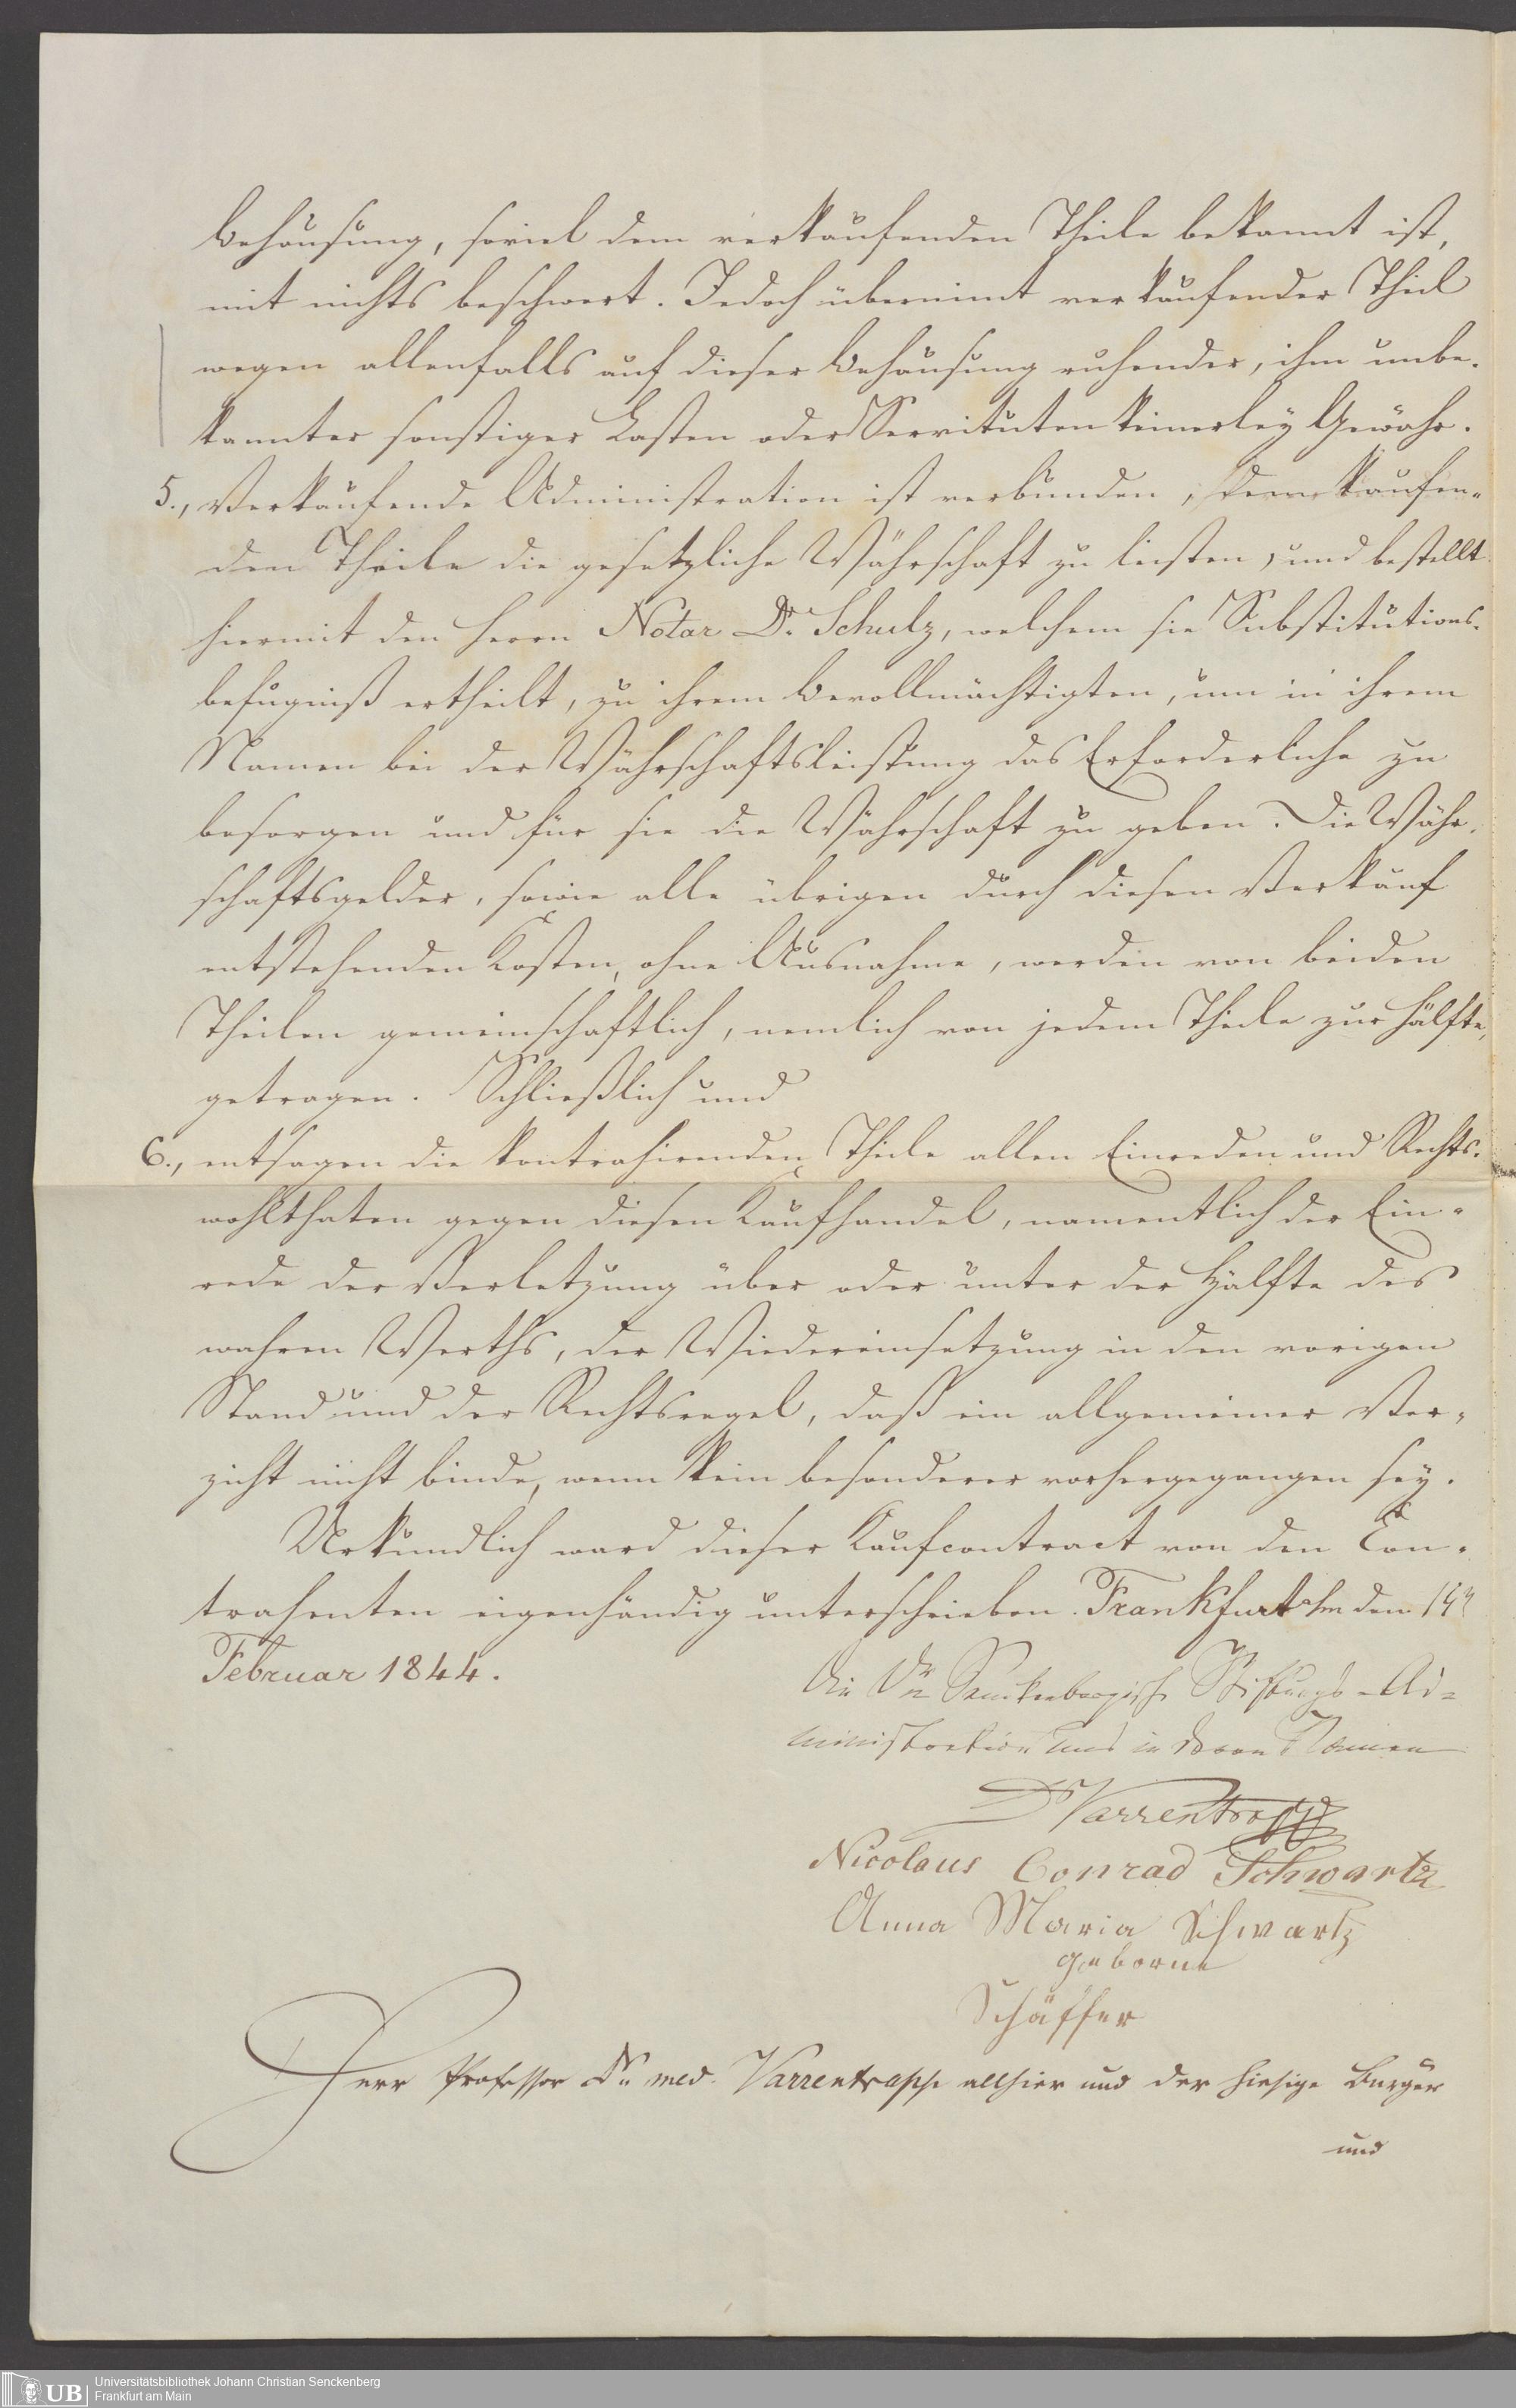 Behausung, soviel dem verkaufenden Theile bekannt ist,
mit nichts beschwert. Jedoch übernimt verkaufender Theil
wegen allenfalls auf dieser Behausung ruhender, ihm unbe-
kannter sonstiger Lasten oder Servituten keinerley Gewähr.
5., Verkaufende Administration ist verbunden, dem kaufen-
den Theile die gesetzliche Währschaft zu leisten, und bestellt
hiermit den Herrn Notar Dr. Schulz, welchem sie Substitutions-
befugniß ertheilt, zu ihrem Bevollmächtigten, um in ihrem
Namen bei der Währschaftsleistung das Erforderliche zu
besorgen und für sie die Währschaft zu geben. Die Währ-
schaftsgelder, sowie alle übrigen durch diesen Verkauf
entstehenden Kosten, ohne Ausnahme, werden von beiden
Theilen gemeinschaftlich, nemlich von jedem Theile zur Hälfte,
getragen. Schließlich und
6., entsagen die kontrahirenden Theile allen Einreden und Rechts-
wohlthaten gegen diesen Kaufhandel, namentlich der Ein-
rede der Verletzung über oder unter der Hälfte des
wahren Werths, der Wiedereinsetzung in den vorigen
Stand und der Rechtsregel, daß ein allgemeiner Ver-
zicht nicht binde, wenn kein besonderer vorhergegangen sey.
Urkundlich ward dieser Kaufcontract von den Con-
trahenten eigenhändig unterschrieben. Frankfurt a/m den 14n
Februar 1844.
Die Dr Senckenbergische Stiftungs-Ad-
ministration und in deren Namen
Dr Varrentrapp
Nicolaus Conrad Schwartz
Anna Maria Schwartz
geborne
Schäffer
Herr Professor Dr. med. Varrentrapp allhier und der hiesige Burger
und
UB
Universitätsbibliothek Johann Christian Senckenberg
Frankfurt am Main